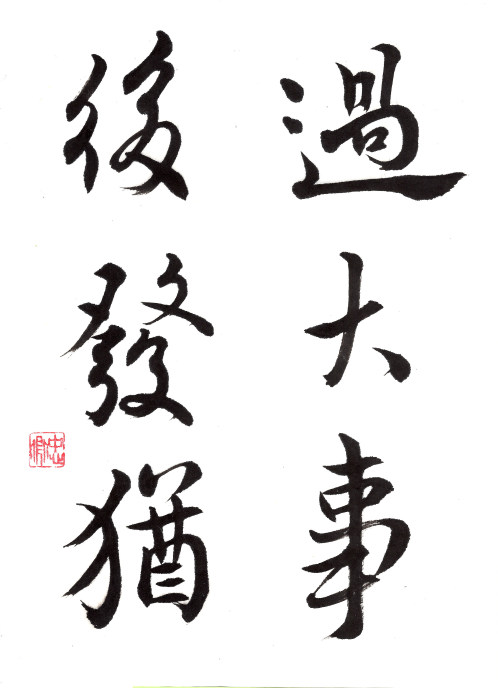 過大事
後發猶